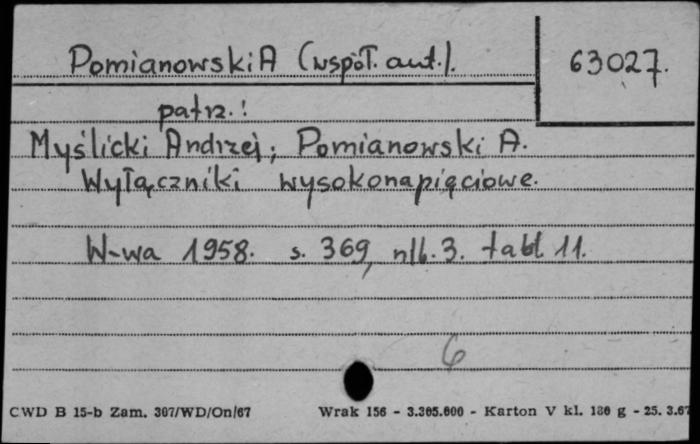 Pomianowski A (współ. aut.).
63027.
patrz.:
Myślicki Andrzej; Pomianowski A.
Wyłączniki wysokonapięciowe.
W-wa 1958. s. 369, nlb. 3. tabl. 11.
6
CWD B 15-b Zam. 307/WD/On/67 Wrak 156 - 3.305.000 - Karton V kl. 180 g - 25. 3.67